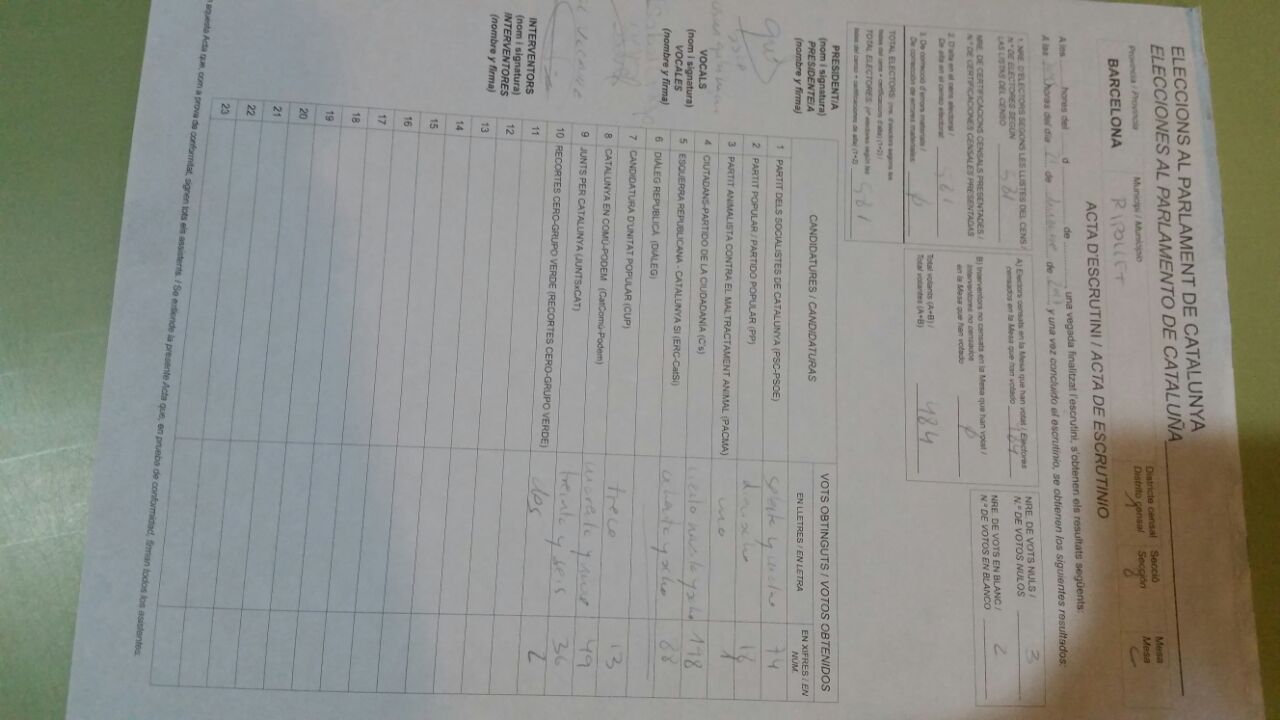 ELECCIONS AL PARLAMENT DE CATALUNYA
ELECCIONES AL PARLAMENTO DE CATALUÑA
Província / Provincia
BARCELONA
Municipi / Municipio
RIPOLLET
Districte censal
Distrito censal
Secció
Sección
8
Mesa
Mesa
C
ACTA D'ESCRUTINI / ACTA DE ESCRUTINIO
A les hores del d de una vegada finalitzat l'escrutini, s'obtenen els resultats següents:
A las horas del día de de 2017 y una vez concluido el escrutinio, se obtienen los siguientes resultados:
1. NRE. D'ELECTORS SEGONS LES LLISTES DEL CENS /
N.º DE ELECTORES SEGÚN
LAS LISTAS DEL CENSO 581
NRE. DE CERTIFICACIONS CENSALS PRESENTADES /
N.º DE CERTIFICACIONES CENSALES PRESENTADAS
2. D'alta en el cens electoral /
De alta en el censo electoral 581
3. De correcció d'errors materials /
De corrección de errores materiales
TOTAL ELECTORS
TOTAL ELECTORES 581
A) Electors censats en la Mesa que han votat / Electores
censados en la Mesa que han votado 484
B) Interventors no censats en la Mesa que han votat /
Interventores no censados
en la Mesa que han votado
Total votants (A+B) /
Total votantes (A+B) 484
NRE. DE VOTS NULS /
N.º DE VOTOS NULOS 3
NRE. DE VOTS EN BLANC /
N.º DE VOTOS EN BLANCO 2
PRESIDENT/A
(nom i signatura)
PRESIDENTE/A
(nombre y firma)
VOCALS
(nom i signatura)
VOCALES
(nombre y firma)
INTERVENTORS
(nom i signatura)
INTERVENTORES
(nombre y firma)
CANDIDATURES / CANDIDATURAS
VOTS OBTINGUTS / VOTOS OBTENIDOS
EN LLETRES / EN LETRA
EN XIFRES / EN NÚM.
1 PARTIT DELS SOCIALISTES DE CATALUNYA (PSC-PSOE) 74
2 PARTIT POPULAR / PARTIDO POPULAR (PP) dieciocho 18
3 PARTIT ANIMALISTA CONTRA EL MALTRACTAMENT ANIMAL (PACMA) uno 1
4 CIUTADANS-PARTIDO DE LA CIUDADANÍA (C's) ciento noventa y ocho 198
5 ESQUERRA REPUBLICANA - CATALUNYA SÍ (ERC-CatSí) ochenta y ocho 88
6 DIÀLEG REPUBLICÀ (DIÀLEG)
7 CANDIDATURA D'UNITAT POPULAR (CUP) trece 13
8 CATALUNYA EN COMÚ-PODEM (CatComú-Podem) 49
9 JUNTS PER CATALUNYA (JUNTSxCAT) treinta y seis 36
10 RECORTES CERO-GRUPO VERDE (RECORTES CERO-GRUPO VERDE) dos 2
11
12
13
14
15
16
17
18
19
20
21
22
23
aquesta Acta que, com a prova de conformitat, signen tots els assistents. / Se extiende la presente Acta que, en prueba de conformidad, firman todos los asistentes.